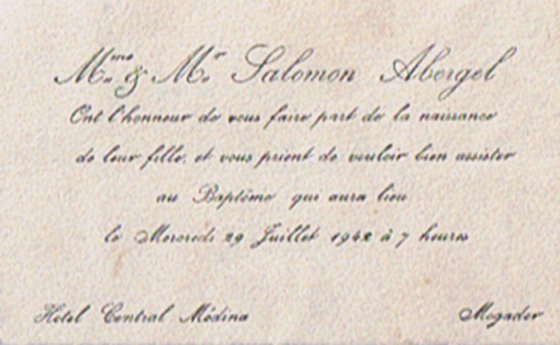 Mme & Mr Salomon Abergel
Ont l'honneur de vous faire part de la naissance
de leur fille, et vous prient de vouloir bien assister
au Baptême qui aura lieu
le Mercredi 29 Juillet 1942 à 7 heures
Hotel Central Médina
Mogador